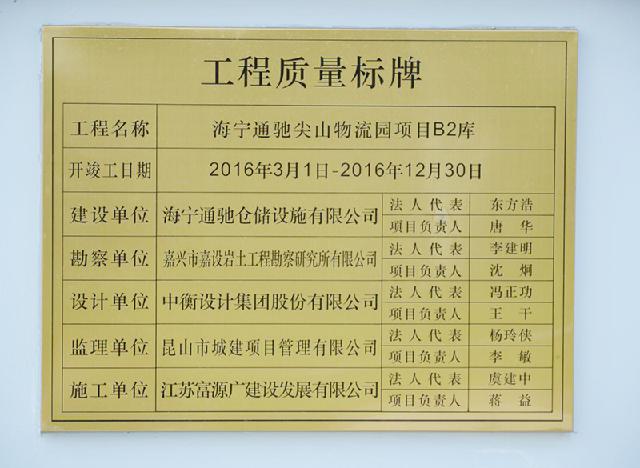 工程质量标牌
工程名称 海宁通驰尖山物流园项目B2库
开竣工日期 2016年3月1日-2016年12月30日
建设单位 海宁通驰仓储设施有限公司 法人代表 东方浩
项目负责人 唐华
勘察单位 嘉兴市嘉设岩土工程勘察研究所有限公司 法人代表 李建明
项目负责人 沈炯
设计单位 中衡设计集团股份有限公司 法人代表 冯正功
项目负责人 王干
监理单位 昆山市城建项目管理有限公司 法人代表 杨玲侠
项目负责人 李敏
施工单位 江苏富源广建设发展有限公司 法人代表 虞建中
项目负责人 蒋益